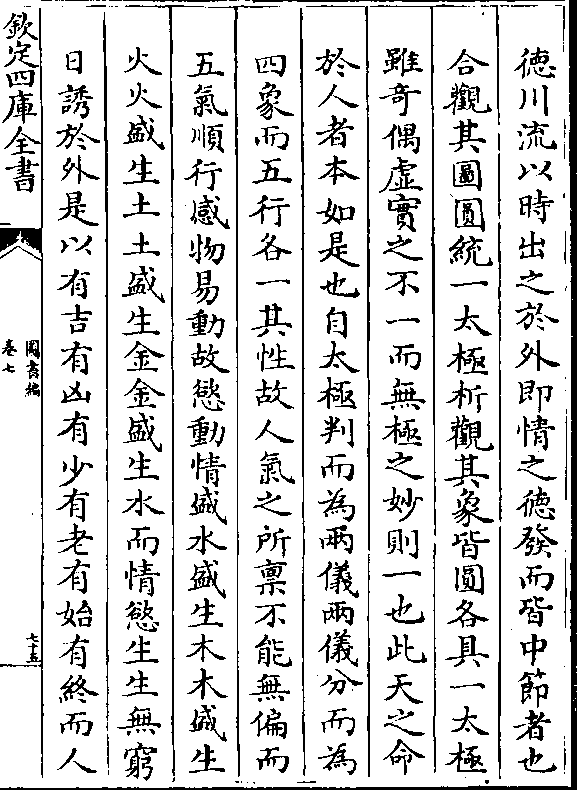 德川流以時出之於外即情之德發而皆中節者也
合觀其圖圓統一太極析觀其象皆圓各具一太極
雖奇偶虛實之不一而無極之妙則一也此天之命
於人者本如是也自太極判而為兩儀兩儀分而為
四象而五行各一其性故人氣之所禀不能無偏而
五氣順行感物易動故慾動情盛水盛生木木盛生
火火盛生土土盛生金金盛生水而情慾生生無窮
日誘於外是以有吉有凶有少有老有始有終而人
欽定四庫全書
圖書編
卷七
七十五